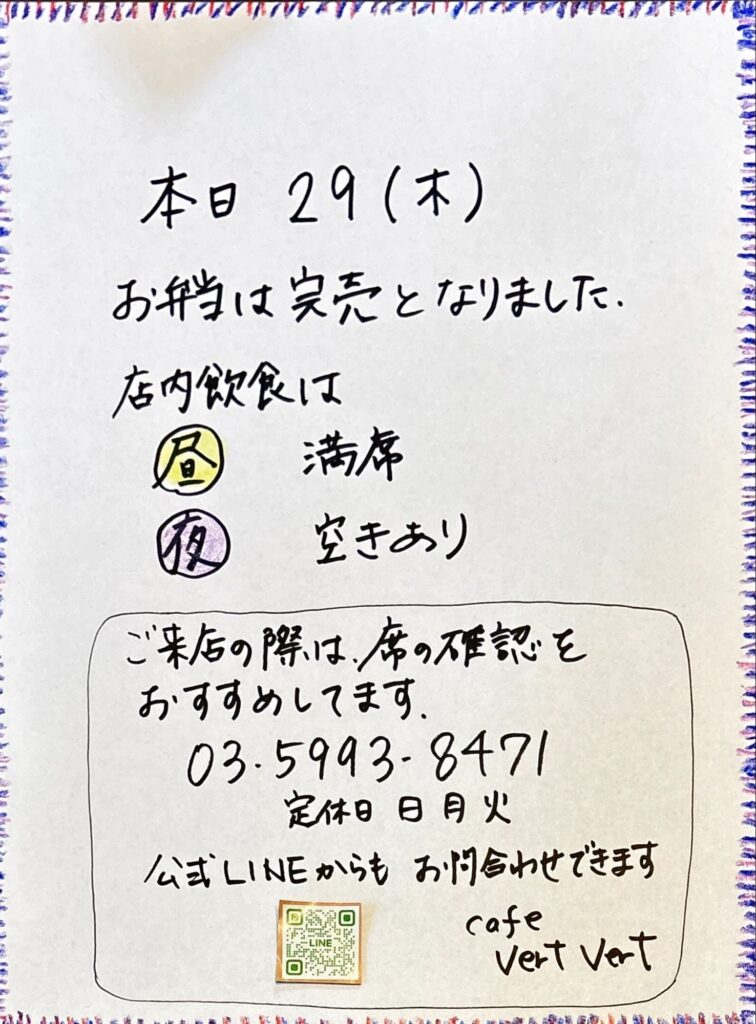 本日 29(木)
お弁当は完売となりました.
店内飲食は
昼 満席
夜 空きあり
ご来店の際は、席の確認を
おすすめしてます.
03-5993-8471
定休日 日月火
公式LINEからも お問合わせできます
LINE
cafe
Vert Vert